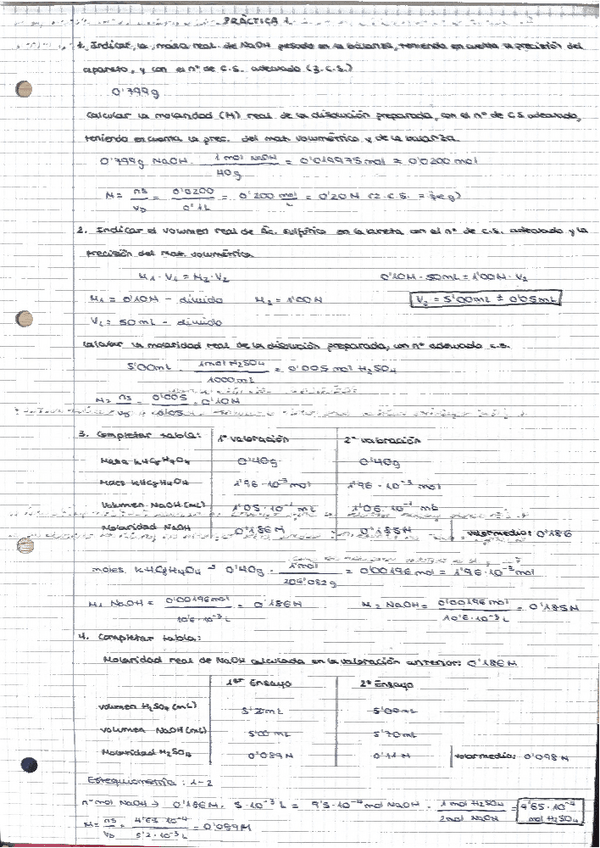 PRÁCTICA 1.
1. Indicar, la masa real de NaOH pesado en la balanza, teniendo en cuenta la precisión del
aparato, y con el nº de C.S. adecuado (3.C.S.)
0'799g
Calcular la molaridad (M) real de la disolución preparada, con el nº de CS adecuado,
teniendo en cuenta la prec. del mat. volumétrico y de la balanza.
0'799g NaOH · 1 mol NaOH / 40g = 0'019975 mol ≈ 0'0200 mol
M = ns / VD = 0'0200 / 0'1L = 0'200 mol/L = 0'20M (2 C.S.
2. Indicar el volumen real de ác. sulfúrico en la bureta con el nº de C.S. adecuado y la
precisión del mat. volumétrico.
M1 · V1 = M2 · V2 0'10M · 50mL = 1'00M · V2
M1 = 0'10M - diluido M2 = 1'00M V2 = 5'00mL ± 0'05mL
V1 = 50mL - diluido
Calcular la molaridad real de la disolución preparada, con nº adecuado C.S.
5'00mL · 1mol H2SO4 / 1000mL = 0'005 mol H2SO4
M = ns / VD = 0'005 / 0'05 = 0'10M
3. Completar tabla: 1ª valoración 2ª valoración
Masa KHC8H4O4 0'40g 0'40g
KHC8H4O4 1'96 · 10⁻³ mol 1'96 · 10⁻³ mol
Volumen NaOH (mL) 1'05 · 10⁻¹ mL 1'06 · 10⁻¹ mL
Molaridad NaOH 0'186M 0'185M valor medio: 0'186
moles KHC8H4O4 → 0'40g · 1mol / 204'082g = 0'00196 mol = 1'96 · 10⁻³ mol
M1 NaOH = 0'00196mol / 10'5 · 10⁻³ L = 0'186M M2 NaOH = 0'00196 mol / 10'6 · 10⁻³ L = 0'185M
4. Completar tabla:
Molaridad real de NaOH calculada en la valoración anterior: 0'186M
1er Ensayo 2º Ensayo
Volumen H2SO4 (mL) 5'20mL 5'00mL
Volumen NaOH (mL) 5'00 mL 5'70mL
Molaridad H2SO4 0'089M 0'11M valor medio: 0'098M
Estequiometría: 1-2
nº mol NaOH → 0'186M · 5 · 10⁻³ L = 9'3 · 10⁻⁴ mol NaOH · 1 mol H2SO4 / 2mol NaOH = 4'65 · 10⁻⁴ mol H2SO4
M = ns / VD = 4'65 · 10⁻⁴ / 5'2 · 10⁻³ L = 0'089M